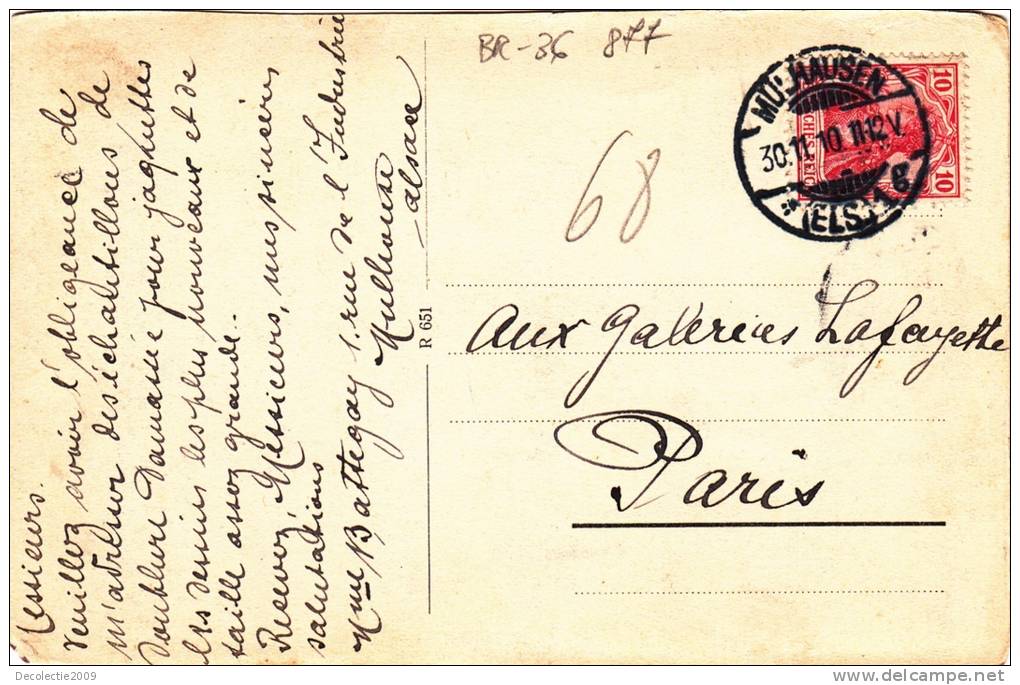 BR-36 877
MÜLHAUSEN
30.11.10 11-12 V.
*(ELS.) 1 g
10
10
68
Messieurs.
Veuillez avoir l'obligeance de
m'adresser des échantillons de
Doublure Damasée pour jaquettes
les dessins les plus nouveaux et de
taille assez grande.
Recevez, Messieurs, mes sincères
salutations
Mme Battegay 1. rue de l'Industrie
Mulhouse
Alsace
R 651
Aux Galeries Lafayette
Paris
Decolectie2009
www.delcampe.net